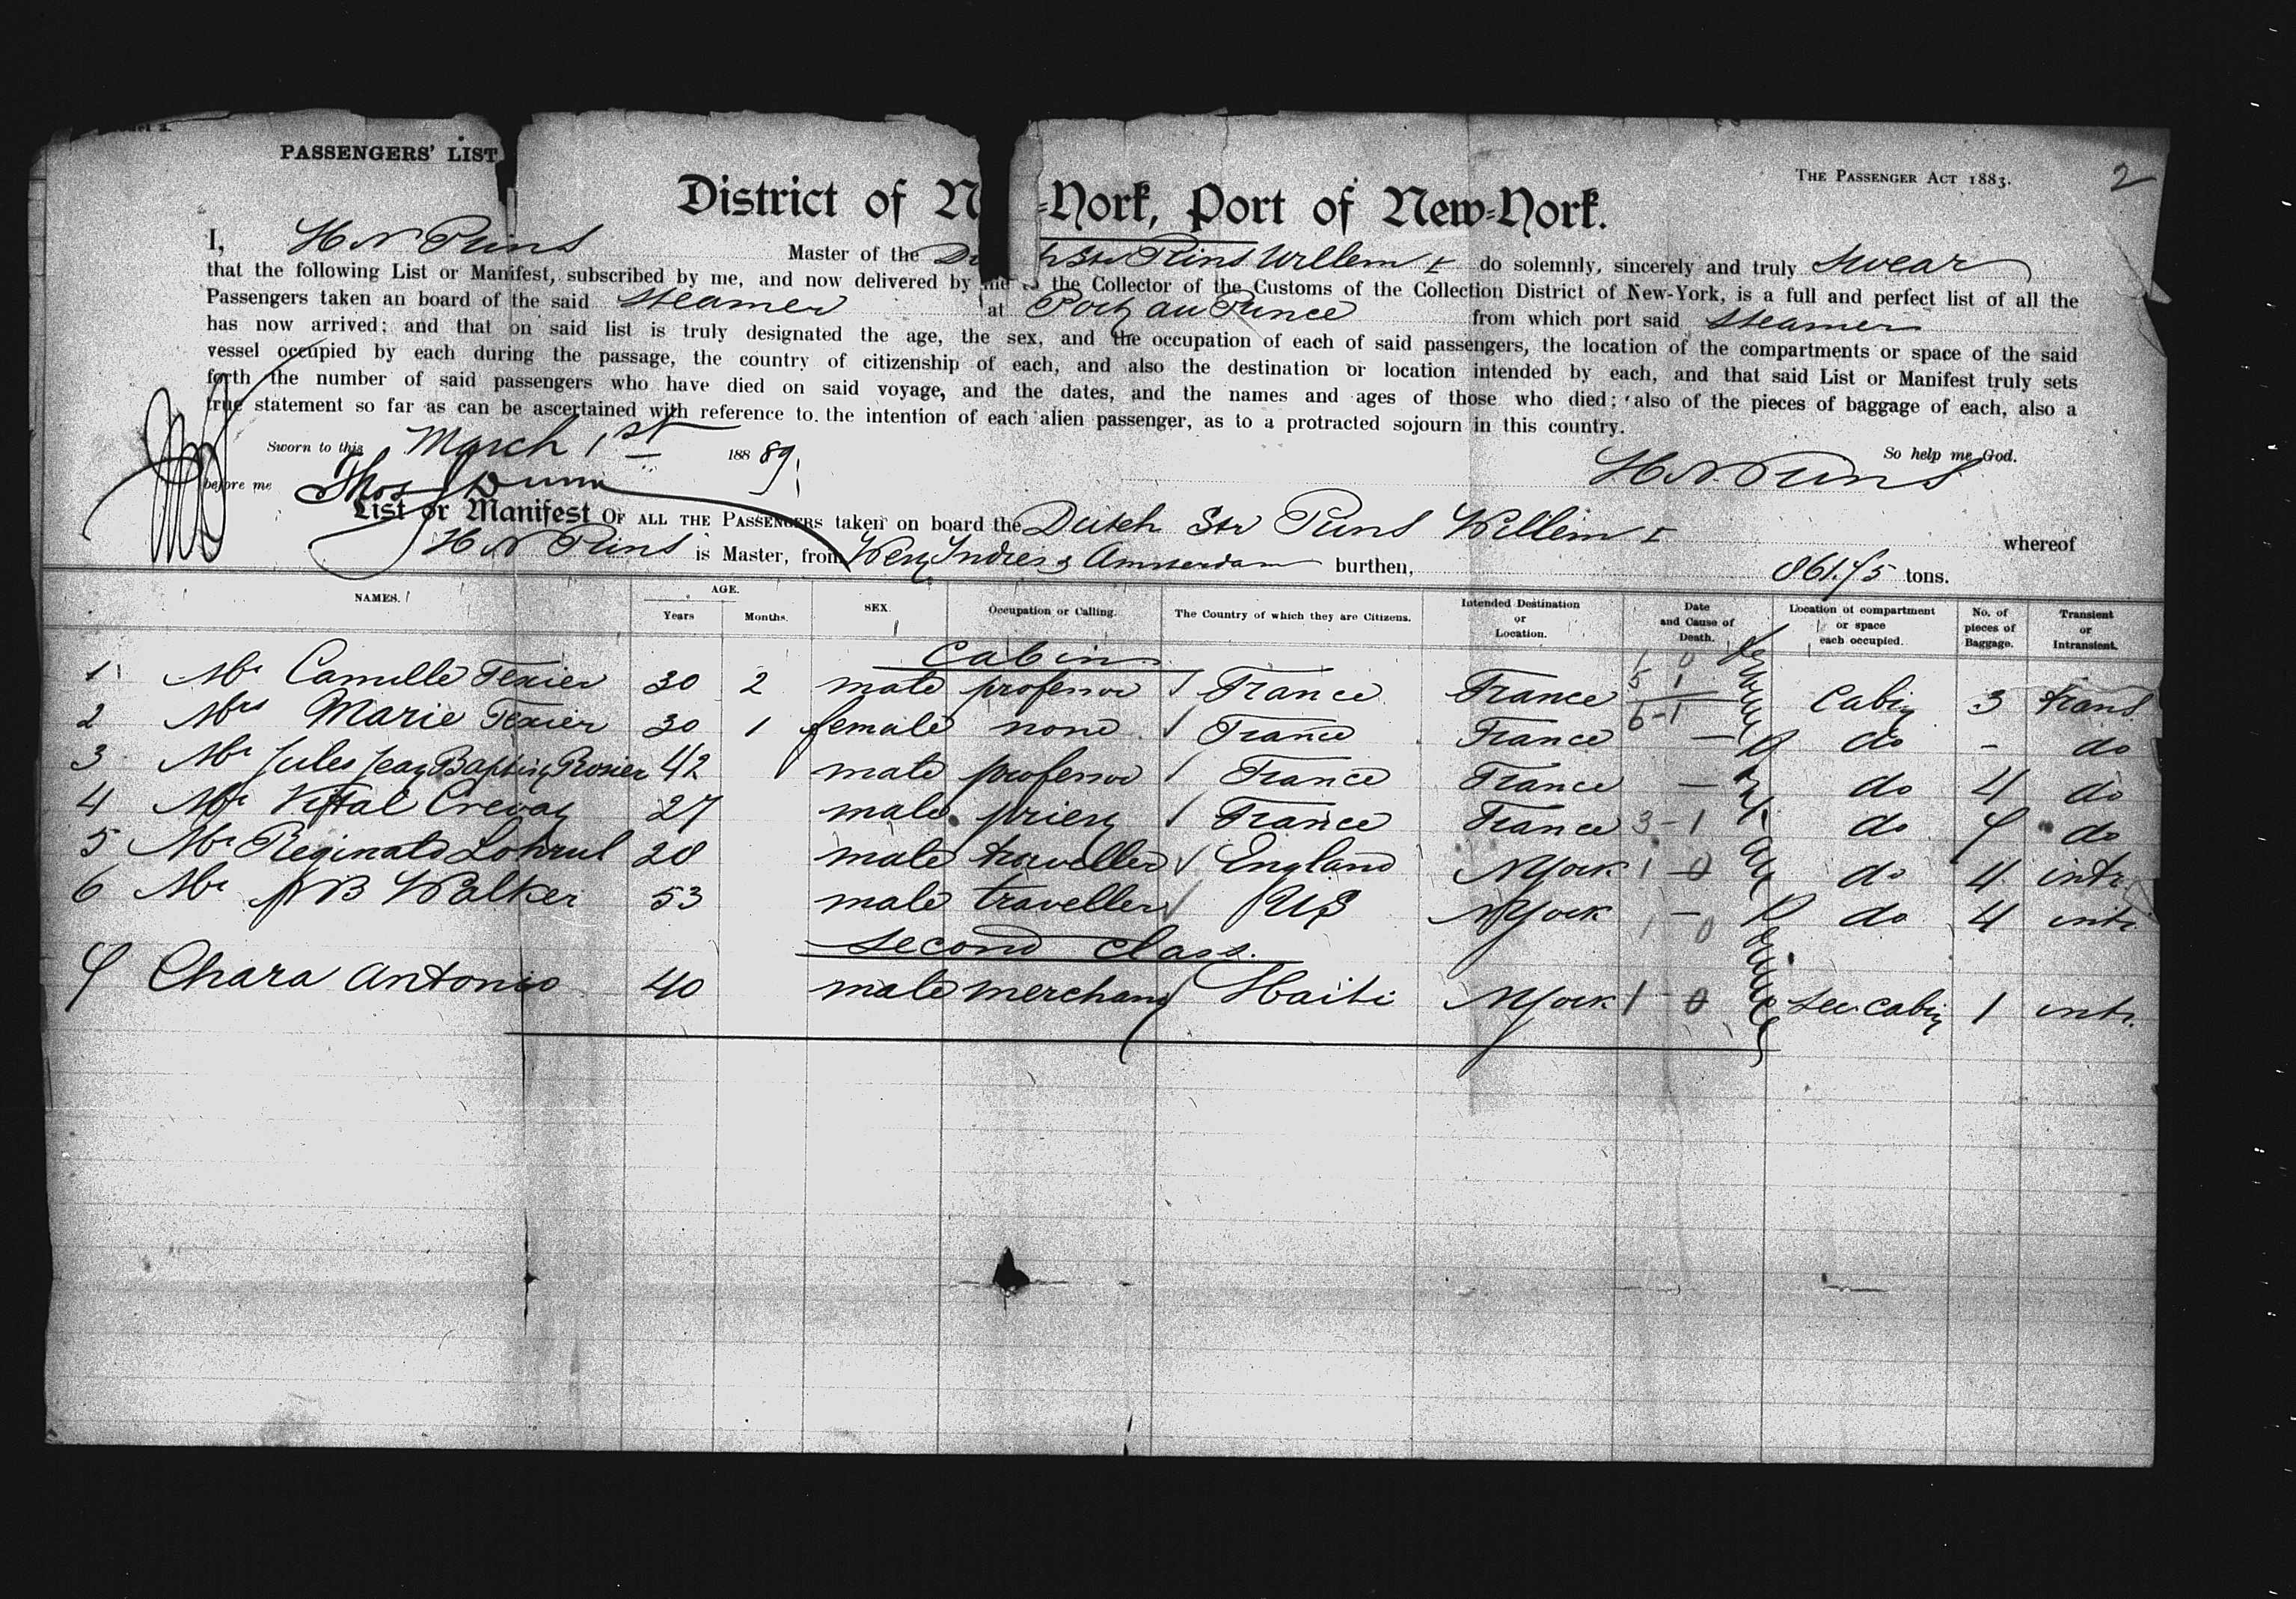 PASSENGERS' LIST
THE PASSENGER ACT 1883.
2
District of N =York, Port of New=York.
I, H N Prins Master of the Du h Str Prins Willem I do solemnly, sincerely and truly swear
that the following List or Manifest, subscribed by me, and now delivered by me to the Collector of the Customs of the Collection District of New-York, is a full and perfect list of all the
Passengers taken an board of the said steamer at Port au Prince from which port said steamer
has now arrived; and that on said list is truly designated the age, the sex, and the occupation of each of said passengers, the location of the compartments or space of the said
vessel occupied by each during the passage, the country of citizenship of each, and also the destination or location intended by each, and that said List or Manifest truly sets
forth the number of said passengers who have died on said voyage, and the dates, and the names and ages of those who died; also of the pieces of baggage of each, also a
true statement so far as can be ascertained with reference to the intention of each alien passenger, as to a protracted sojourn in this country.
Sworn to this March 1st 188 89 So help me God.
before me Thos Dunn H N. Prins
List or Manifest OF ALL THE PASSENGERS taken on board the Dutch Str Prins Willem I whereof
H N Prins is Master, from West Indies & Amsterdam burthen, 861.75 tons.
NAMES. AGE. Years Months. SEX. Occupation or Calling. The Country of which they are Citizens. Intended Destination or Location. Date and Cause of Death. Location of compartment or space each occupied. No. of pieces of Baggage. Transient or Intransient.
Cabin
1 Mr Camille Texier 30 2 male professor France France Cabin 3 trans
2 Mrs Marie Texier 30 1 female none France France — do - do
3 Mr Jules Jean Baptist Rosier 42 male professor France France — do 4 do
4 Mr Vital 27 male priest France France 3-1 do 7 do
5 Mr Reginald 28 male traveller England NYork 1 0 do 4 intr.
6 Mr B Walker 53 male traveller US NYork 1 - 0 do 4 intr
second class.
7 Chara Antonio 40 male merchant Haiti NYork 1 0 sec. cabin 1 intr.